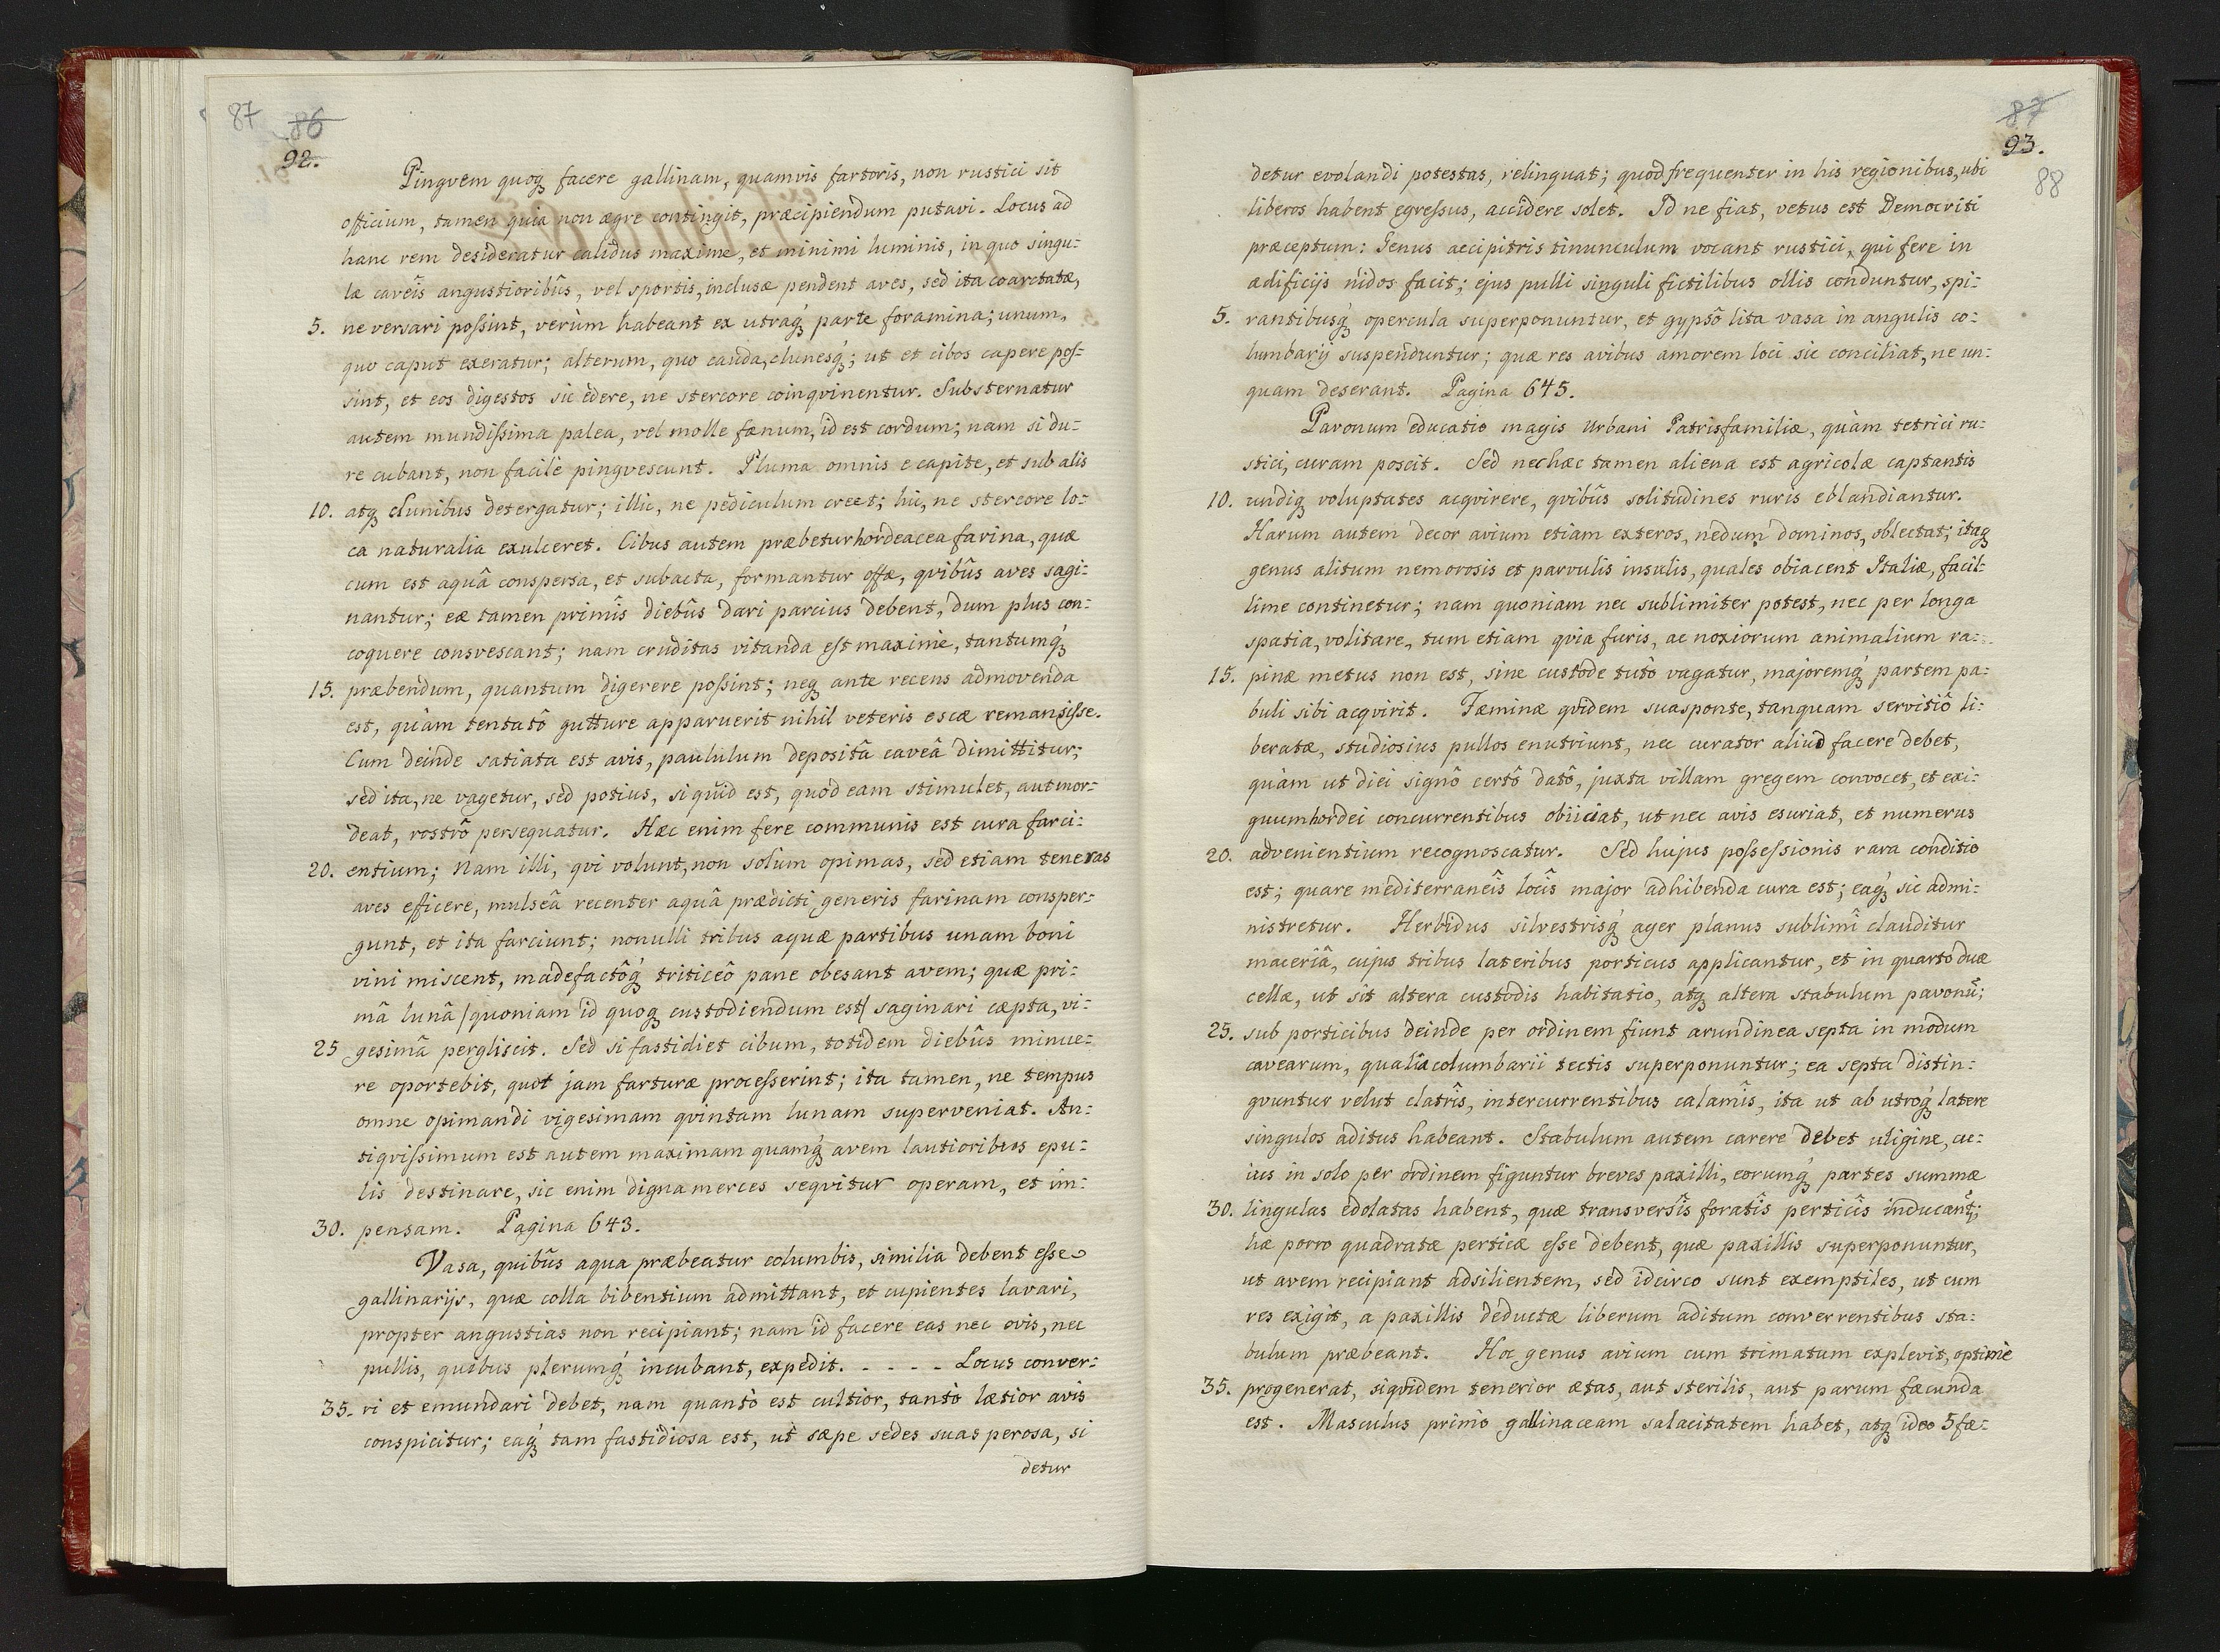 87 86
92.
Pingvem quoq facere gallinam, quamvis fartoris, non rustici sit
officium, tamen quia non ægre contingit, præcipiendum putavi. Locus ad
hanc rem desideratur calidus maxime, et minimi luminis, in quo singu-
læ caveîs angustioribûs, vel sportis, inclusæ pendent aves, sed ita coarctatæ,
5. ne versari possint, verùm habeant ex utraq́ parte foramina; unum,
quo caput exeratur; alterum, quo cauda, clunesq́; ut et cibos capere pos-
sint, et eos digestos sic edere, ne stercore coinqvinentur. Substernatur
autem mundissima palea, vel molle fœnum, id est cordum; nam si du-
re cubant, non facilè pingvescunt. Pluma omnis e capite, et sub alis
10. atq clunibus detergatur; illic, ne pediculum creet; hic, ne stercore lo-
ca naturalia exulceret. Cibus autem præbetur hordeacea farina, quæ
cum est aquâ conspersa, et subacta, formantur offæ, qvibûs aves sagi-
nantur; eæ tamen primîs diebûs dari parcius debent, dum plus con-
coquere consvescant; nam cruditas vitanda est maxime, tantumq́
15. præbendum, quantum digerere possint; neq ante recens admovenda
est, quàm tentatô gutture apparuerit nihil veteris escæ remansisse.
Cum deinde satiata est avis, paululum depositâ caveâ dimittitur;
sed ita, ne vagetur, sed potius, si quid est, quod eam stimulet, aut mor-
deat, rostrô persequatur. Hæc enim fere communis est cura farci-
20. entium; Nam illi, qvi volunt, non solum opimas, sed etiam teneras
aves efficere, mulseâ recenter aquâ prædicti generis farinam consper-
gunt, et ita farciunt; nonulli tribus aquæ partibus unam boni
vini miscent, madefactôq́ triticeô pane obesant avem; quæ pri-
mâ lunâ /quoniam id quoq custodiendum est/ saginari cæpta, vi-
25 gesimâ pergliscit. Sed si fastidiet cibum, totidem diebûs minue-
re oportebit, quot jam farturæ processerint; ita tamen, ne tempus
omne opimandi vigesimam qvintam lunam superveniat. An-
tiqvissimum est autem maximam quamq́ avem lautioribus epu-
lis destinare, sic enim digna merces seqvitur operam, et im-
30. pensam. Pagina 643.
Vasa, quibûs aqua præbeatur columbis, similia debent esse
gallinarijs, quæ colla bibentium admittant, et cupientes lavari,
propter angustias non recipiant; nam id facere eas nec ovis, nec
pullis, quibus plerumq́ incubant, expedit. - - - - Locus conver-
35. ri et emundari debet, nam quantò est cultior, tantò lætior avis
conspicitur; eaq́ tam fastidiosa est, ut sæpe sedes suas perosa, si
detur
87
93.
88
detur evolandi potestas, relinquat; quod frequenter in his regionibus, ubi
liberos habent egressus, accidere solet. Id ne fiat, vetus est Democriti
præceptum: Genus accipitris tinunculum vocant rustici, qui fere in
ædificijs nidos facit; ejus pulli singuli fictilibus ollis conduntur, spi-
5. rantibusq́ opercula superponuntur, et gypsô lita vasa in angulis co-
lumbarij suspenduntur; quæ res avibus amorem loci sic conciliat, ne un-
quam deserant. Pagina 645.
Pavonum educatio magis Urbani Patrisfamiliæ, quàm tetrici ru-
stici, curam poscit. Sed nec hæc tamen aliena est agricolæ captantis
10. undiq voluptates acqvirere, qvibûs solitudines ruris eblandiantur.
Harum autem decor avium etiam exteros, nedum dominos, oblectat; itaq
genus alitum nemorosis et parvulis insulis, quales obiacent Italiæ, facil-
lime continetur; nam quoniam nec sublimiter potest, nec per longa
spatia, volitare, tum etiam qvia furis, ac noxiorum animalium ra-
15. pinæ metus non est, sine custode tutò vagatur, majoremq́ partem pa-
buli sibi acqvirit. Fæminæ qvidem suasponte, tanquam servitiô li-
beratæ, studiosius pullos enutriunt, nec curator aliud facere debet,
quàm ut diei signô certô datô, juxta villam gregem convocet, et exi-
guum hordei concurrentibus obiiciat, ut nec avis esuriat, et numerus
20. advenientium recognoscatur. Sed hujus possessionis rara conditio
est; quare mediterraneîs locîs major adhibenda cura est; eaq́ sic admi-
nistretur. Herbidus silvestrisq́ ager planus sublimî clauditur
maceriâ, cujus tribus lateribus porticus applicantur, et in quarto duæ
cellæ, ut sit altera custodis habitatio, atq altera stabulum pavonū;
25. sub porticibus deinde per ordinem fiunt arundinea septa in modum
cavearum, qualia columbarii tectis superponuntur; ea septa distin-
gvuntur velut clatrîs, intercurrentibus calamîs, ita ut ab utroq́ latere
singulos aditus habeant. Stabulum autem carere debet uligine, cu-
ius in solo per ordinem figuntur breves paxilli, eorumq́ partes summæ
30. lingulas edolatas habent, quæ transversîs foratîs perticîs inducant̄;
hæ porro quadratæ perticæ esse debent, quæ paxillis superponuntur,
ut avem recipiant adsilientem, sed idcirco sunt exemptiles, ut cum
res exigit, a paxillis deductæ liberum aditum converrentibus sta-
bulum præbeant. Hoc genus avium cum trimatum explevit, optimè
35. progenerat, siqvidem tenerior ætas, aut sterilis, aut parum fæcunda
est. Masculus primò gallinaceam salacitatem habet, atq ideo 5 fæ-